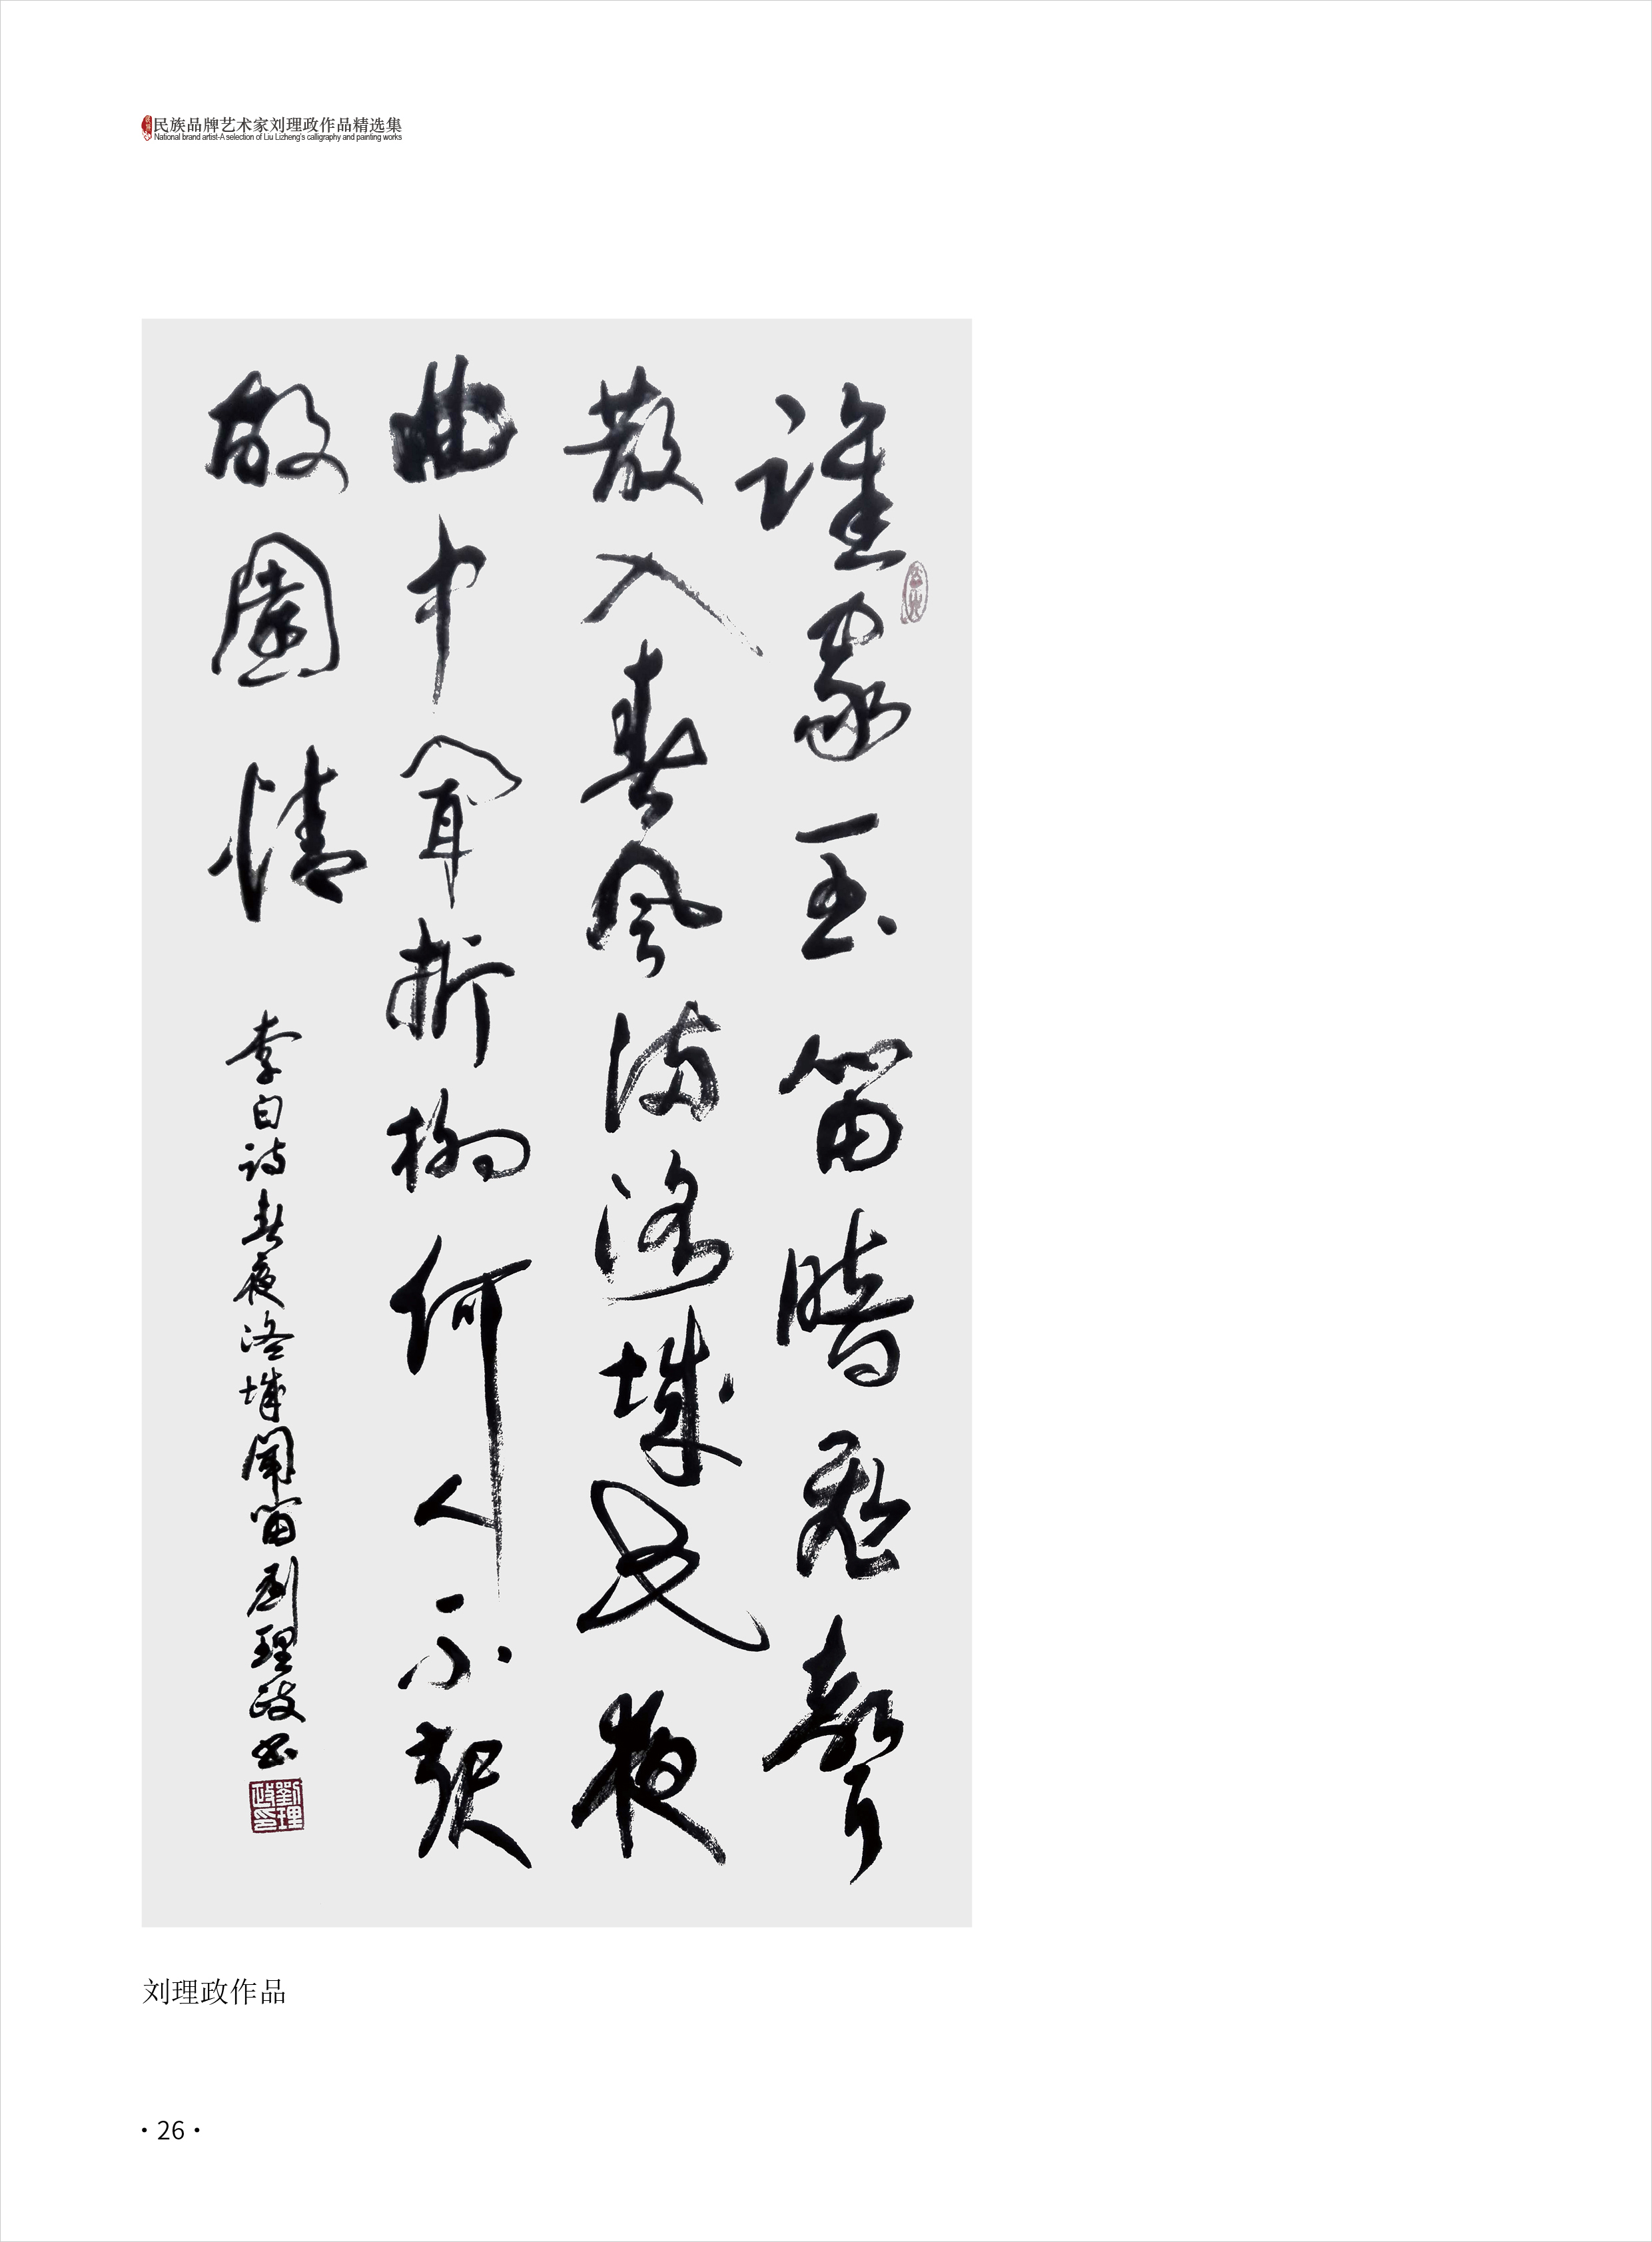 民族品牌艺术家刘理政作品精选集
National brand artist-A selection of Liu Lizheng's calligraphy and painting works
誰家玉笛暗飛聲
散入春風滿洛城此夜
曲中聞折柳何人不起
故園情
李白詩春夜洛城聞笛劉理政書
劉理政印
刘理政作品
·26·